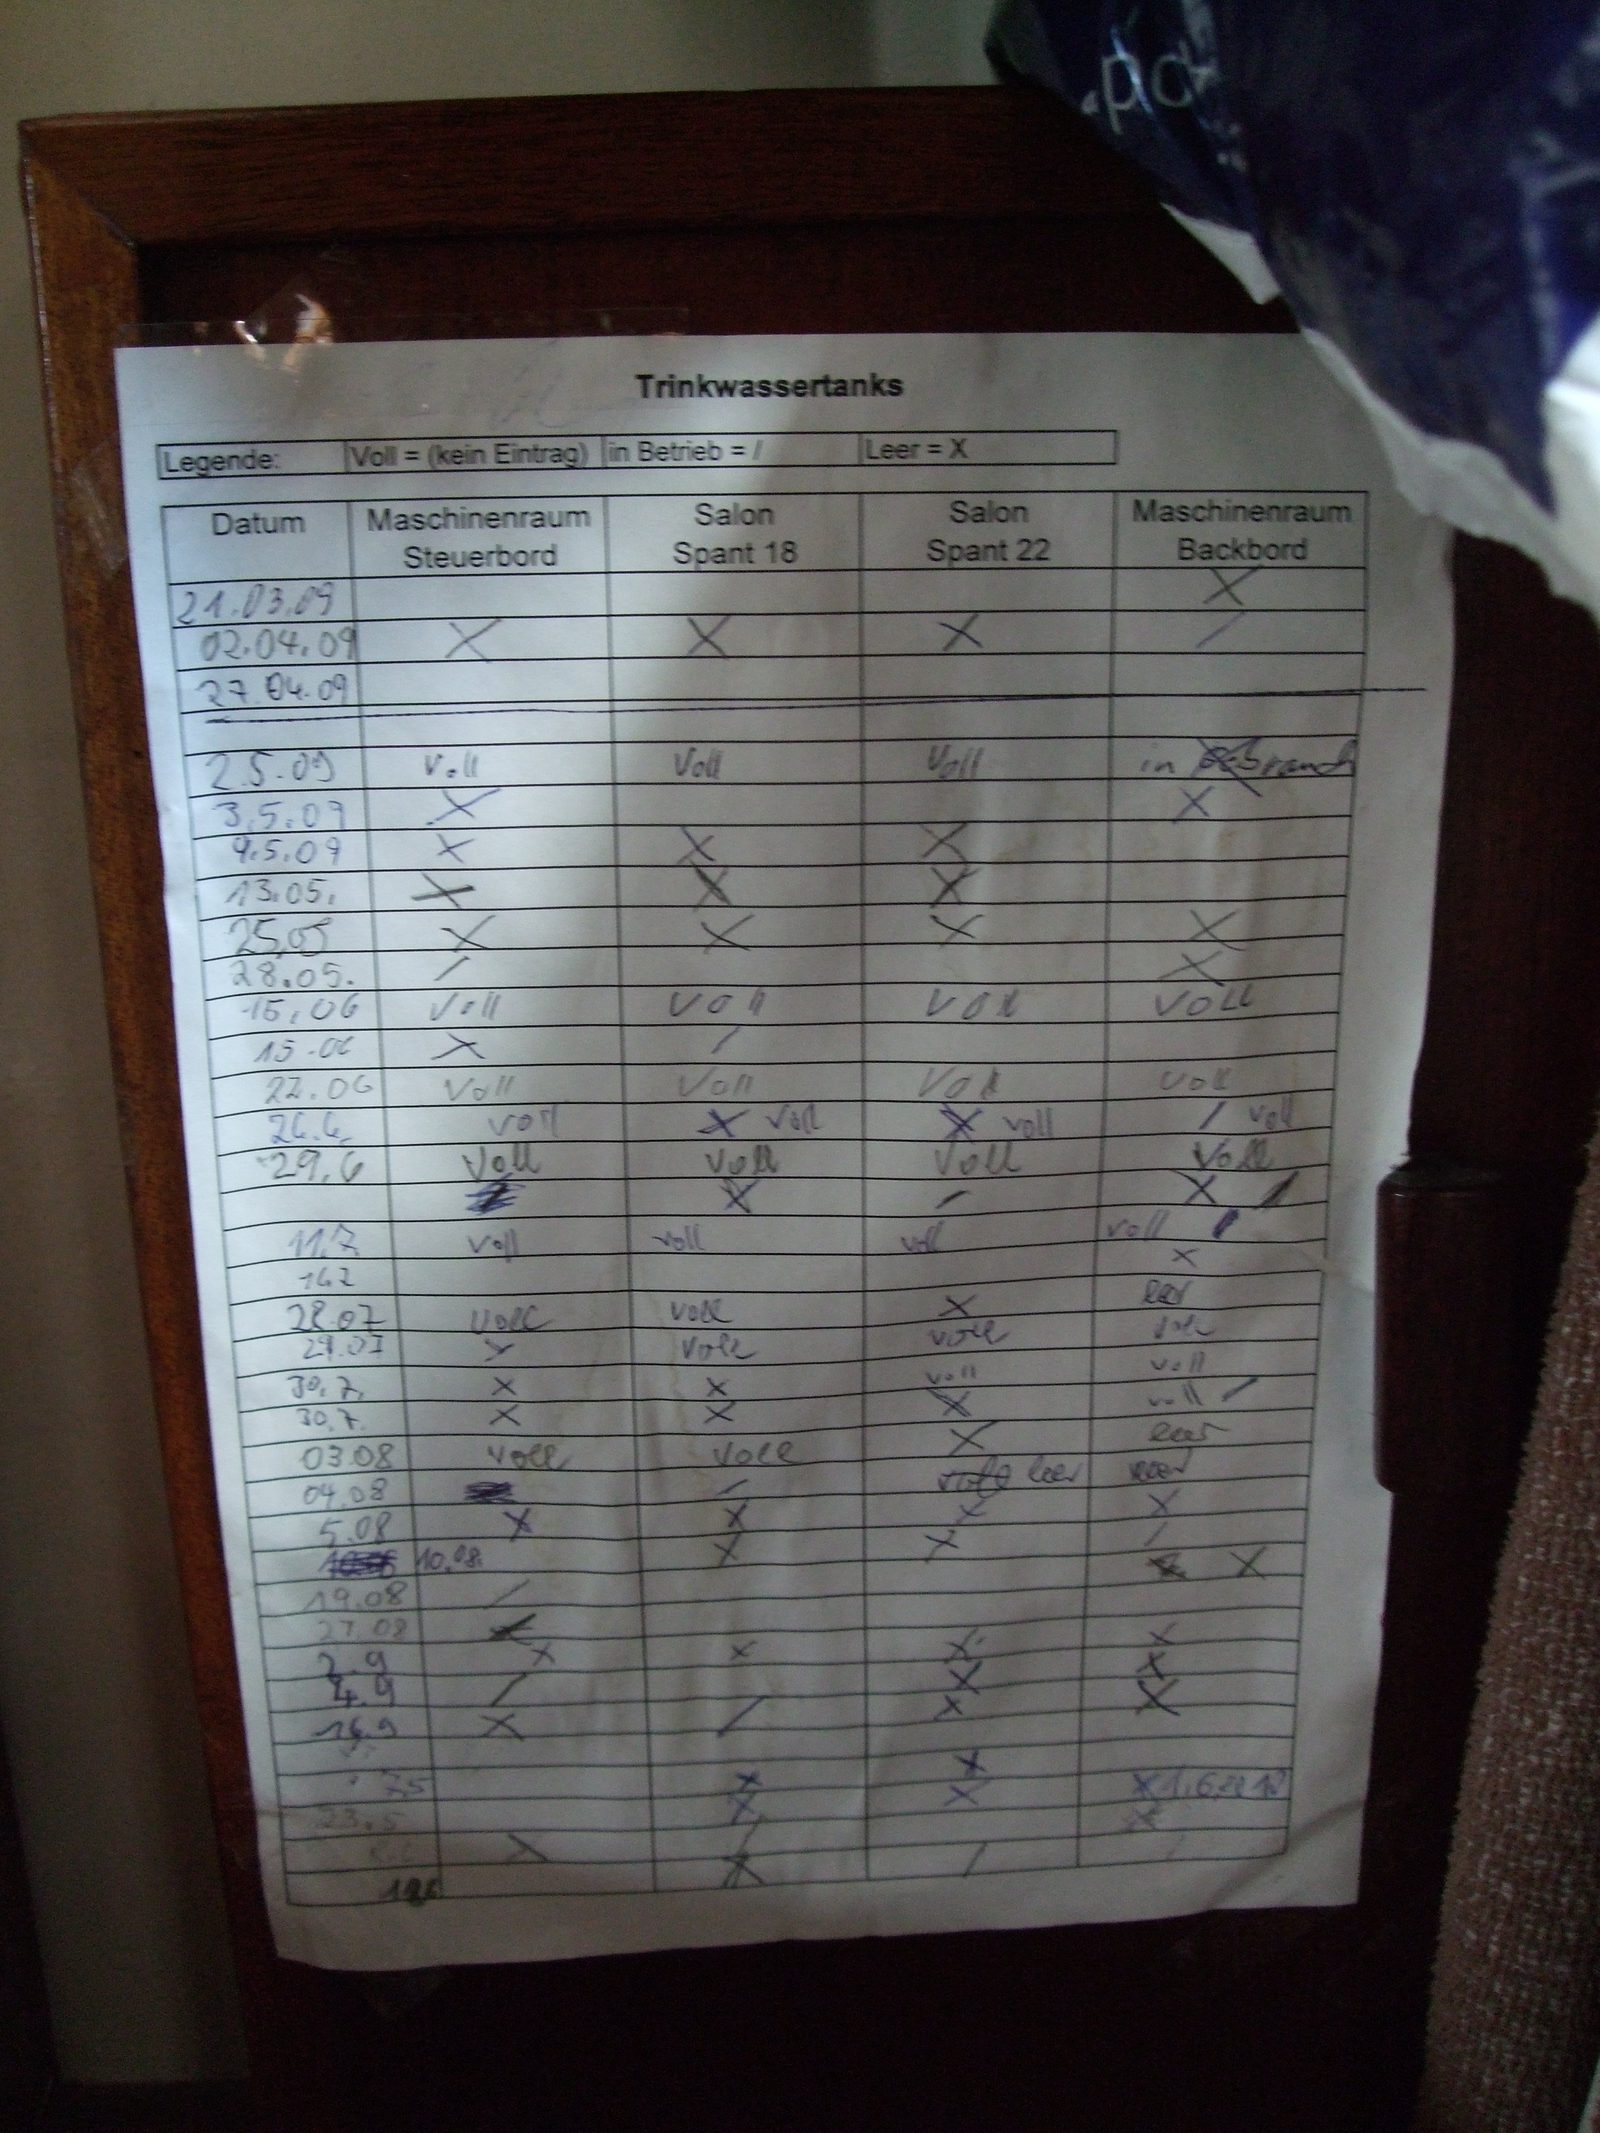 Trinkwassertanks
Legende: Voll = (kein Eintrag) in Betrieb = / Leer = X
Datum Maschinenraum Steuerbord Salon Spant 18 Salon Spant 22 Maschinenraum Backbord
21.03.09 X
02.04.09 X X X /
27.04.09
2.5.09 Voll Voll Voll in
3.5.09 X X
9.5.09 X X X
13.05. X X X
25.05 X X X X
28.05. / X
15.06 Voll Voll Voll Voll
15.06 X /
22.06 Voll Voll Voll Voll
voll X voll X voll / voll
29.6 Voll Voll Voll Voll
X / X /
11.7. voll voll voll voll
X
28.07 voll voll X leer
29.07 X voll voll voll
30.7. X X voll voll
30.7. X X X voll /
03.08 voll voll X leer
04.08 / leer leer
5.08 X X X X
10.08. X X /
X
19.08 /
27.08
2.9 X X X X
4.9 / X X
16.9 X / X X
X
X X X
23.5 X
X / /
X